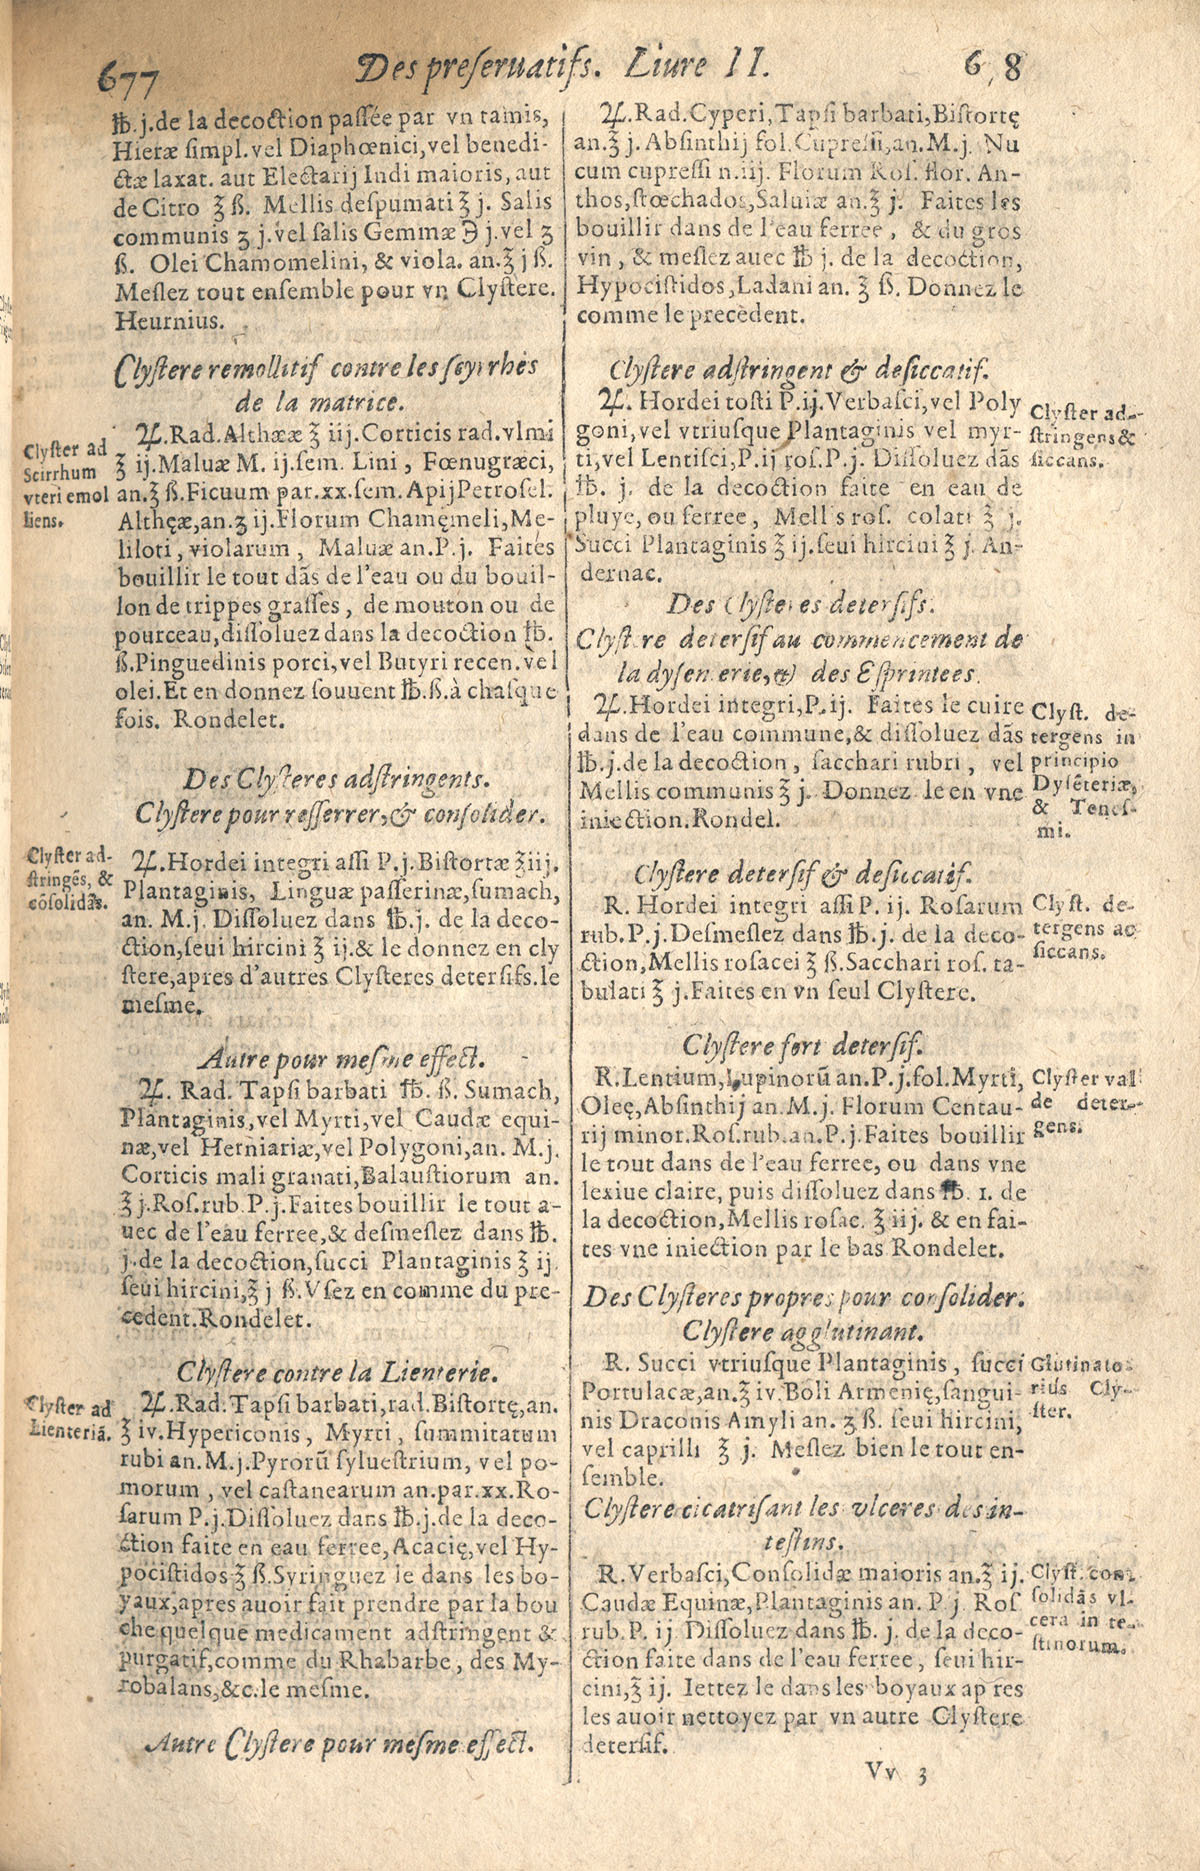 677
Des preseruatifs. Liure II.
6 8
℔.j.de la decoction passée par vn tamis,
Hieræ simpl.vel Diaphœnici,vel benedi-
ctæ laxat. aut Electarij Indi maioris, aut
de Citro ℥ ß. Mellis despumati ℥ j. Salis
communis ʒ j.vel salis Gemmæ ℈ j.vel ʒ
ß. Olei Chamomelini, & viola. an.℥ j ß.
Meslez tout ensemble pour vn Clystere.
Heurnius.
Clystere remollitif contre les scyrrhes
de la matrice.
Clyster ad
Scirrhum
vteri emol
liens.
♃.Rad.Althææ ℥ iij.Corticis rad.vlmi
℥ ij.Maluæ M. ij.sem. Lini, Fœnugræci,
an.℥ ß.Ficuum par.xx.sem.Apij Petrosel.
Althęæ,an.ʒ ij.Florum Chamęmeli,Me-
liloti, violarum, Maluæ an.P.j. Faites
bouillir le tout dãs de l'eau ou du bouil-
lon de trippes grasses, de mouton ou de
pourceau,dissoluez dans la decoction ℔.
ß.Pinguedinis porci,vel Butyri recen.vel
olei.Et en donnez souuent ℔.ß.à chasque
fois. Rondelet.
Des Clysteres adstringents.
Clystere pour resserrer,& consolider.
Clyster ad-
stringẽs, &
cõsolidãs.
♃.Hordei integri assi P.j.Bistortæ ℥iij.
Plantaginis, Linguæ passerinæ,sumach,
an. M.j. Dissoluez dans ℔.j. de la deco-
ction,seui hircini ℥ ij.& le donnez en cly
stere,apres d'autres Clysteres detersifs.le
mesme.
Autre pour mesme effect.
♃. Rad. Tapsi barbati ℔. ß. Sumach,
Plantaginis,vel Myrti,vel Caudæ equi-
næ,vel Herniariæ,vel Polygoni,an. M.j.
Corticis mali granati,Balaustiorum an.
℥ j.Ros.rub.P.j.Faites bouillir le tout a-
uec de l'eau ferree,& desmeslez dans ℔.
j.de la decoction,succi Plantaginis ℥ ij.
seui hircini,℥ j ß.Vsez en comme du pre-
cedent.Rondelet.
Clystere contre la Lienterie.
Clyster ad
Lienteriã.
♃.Rad.Tapsi barbati,rad.Bistortę,an.
℥ iv.Hypericonis, Myrti, summitatum
rubi an.M.j.Pyrorũ syluestrium, vel po-
morum, vel castanearum an.par.xx.Ro-
sarum P.j.Dissoluez dans ℔.j.de la deco-
ction faite en eau ferree,Acacię,vel Hy-
pocistidos ℥ ß.Syringuez le dans les bo-
yaux,apres auoir fait prendre par la bou
che quelque medicament adstringent &
purgatif,comme du Rhabarbe, des My-
robalans,&c.le mesme.
Autre Clystere pour mesme effect.
♃.Rad.Cyperi,Tapsi barbati,Bistortę
an.℥ j. Absinthij fol.Cupressi,an.M.j. Nu
cum cupressi n.iij. Florum Ros. flor. An-
thos,stœchados,Saluiæ an.℥ j. Faites les
bouillir dans de l'eau ferree, & du gros
vin, & meslez auec ℔ j. de la decoction,
Hypocistidos,Ladani an. ℥ ß. Donnez le
comme le precedent.
Clystere adstringent & desiccatif.
♃. Hordei tosti P.ij.Verbasci,vel Poly
goni,vel vtriusque Plantaginis vel myr-
ti,vel Lentisci,P.ij ros.P.j. Dissoluez dãs
℔. j. de la decoction faite en eau de
pluye, ou ferree, Mell s ros. colati ℥ j.
Succi Plantaginis ℥ ij.seui hircini ℥ j. An-
dernac.
Clyster ad-
stringens &
siccans.
Des Clysteres detersifs.
Clystere detersif au commencement de
la dysenterie,& des Esprintees.
♃.Hordei integri,P.ij. Faites le cuire
dans de l'eau commune,& dissoluez dãs
℔.j.de la decoction, sacchari rubri, vel
Mellis communis ℥ j. Donnez le en vne
iniection.Rondel.
Clyst. de-
tergens in
principio
Dysẽteriæ,
& Tenes-
mi.
Clystere detersif & desiccatif.
R. Hordei integri assi P. ij. Rosarum
rub.P.j.Desmeslez dans ℔.j. de la deco-
ction,Mellis rosacei ℥ ß.Sacchari ros. ta-
bulati ℥ j.Faites en vn seul Clystere.
Clyst. de-
tergens ac
siccans.
Clystere fort detersif.
R.Lentium,Lupinorũ an.P.j.fol.Myrti,
Oleę,Absinthij an.M.j. Florum Centau-
rij minor.Ros.rub.an.P.j.Faites bouillir
le tout dans de l'eau ferree, ou dans vne
lexiue claire, puis dissoluez dans ℔. 1. de
la decoction,Mellis rosac. ℥ iij. & en fai-
tes vne iniection par le bas Rondelet.
Clyster val
de deter-
gens.
Des Clysteres propres pour consolider.
Clystere agglutinant.
R. Succi vtriusque Plantaginis, succi
Portulacæ,an.℥ iv.Boli Armenię,sangui-
nis Draconis Amyli an. ʒ ß. seui hircini,
vel caprilli ℥ j. Meslez bien le tout en-
semble.
Glutinato-
rius Cly-
ster.
Clystere cicatrisant les vlceres des in-
testins.
R. Verbasci,Consolidæ maioris an.℥ ij.
Caudæ Equinæ,Plantaginis an. P. j. Ros
rub.P. ij Dissoluez dans ℔. j. de la deco-
ction faite dans de l'eau ferree, seui hir-
cini,℥ ij. Iettez le dans les boyaux apres
les auoir nettoyez par vn autre Clystere
detersif.
Clyst. con-
solidãs vl-
cera in te-
stinorum.
Vv 3